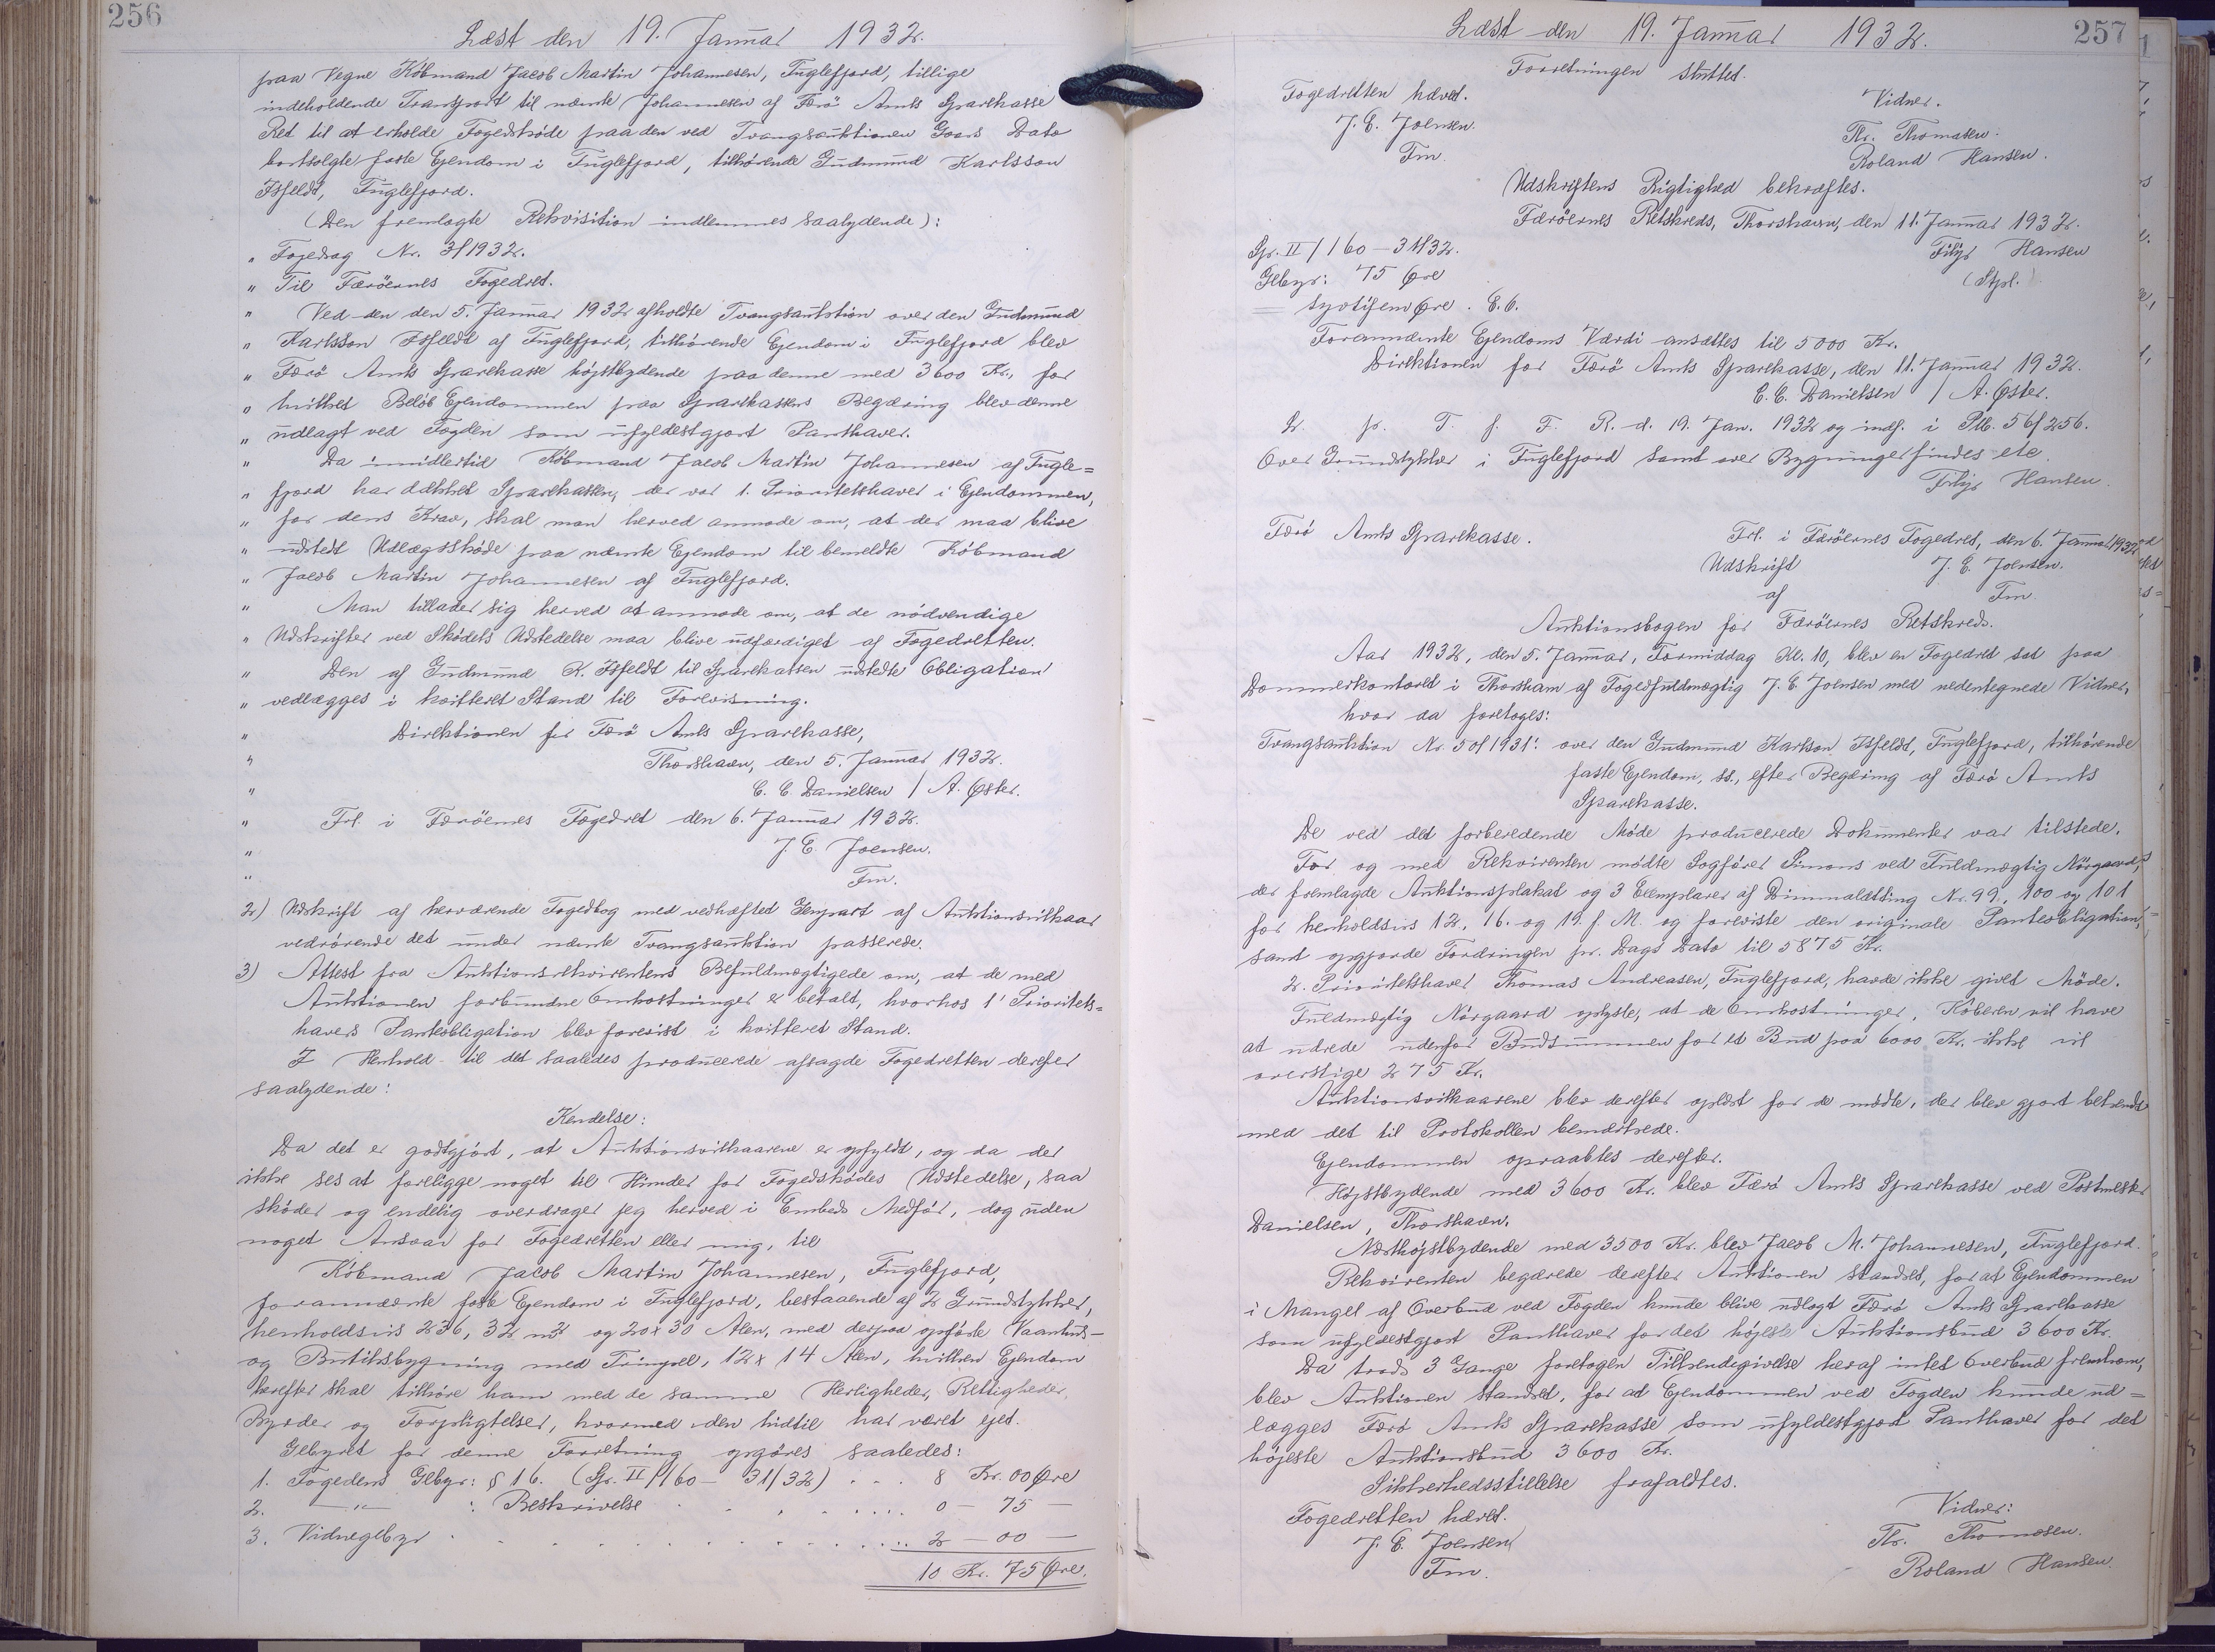 256
Læst den 19. Januar 1932.
paa Vegne Købmand Jacob Martin Johannesen, Fuglefjord, tillige
indeholdende Transport til nævnte Johannesen af Færø Amts Sparekasse
Ret til at erholde Fogedskøde paa den ved Tvangsauktionen Gaars Dato
bortsolgte faste Ejendom i Fuglefjord, tilhørende Gudmund Karlsson
Isfeldt, Fuglefjord.
(Den fremlagte Rekvisition indlemmes saalydende):
" Fogedsag Nr. 3/1932.
" Til Færøernes Fogedret.
" Ved den den 5. Januar 1932 afholdte Tvangsauktion over den Gudmund
" Karlsson Isfeldt af Fuglefjord, tilhørende Ejendom i Fuglefjord blev
" Færø Amts Sparekasse højstbydende paa denne med 3600 Kr., for
" hvilket Beløb Ejendommen paa Sparekassens Begæring blev denne
" udlagt ved Fogden som ufyldestgjort Panthaver.
" Da imidlertid Købmand Jacob Martin Johannesen af Fugle=
" fjord har dækket Sparekassen, der var 1. Prioritetshaver i Ejendommen,
" for dens Krav, skal man herved anmode om, at der maa blive
" udstedt Udlægsskøde paa nævnte Ejendom til bemeldte Købmand
" Jacob Martin Johannesen af Fuglefjord.
" Man tillader sig herved at anmode om, at de nødvendige
" Udskrifter ved Skødets Udstedelse maa blive udfærdiget af Fogedretten.
" Den af Gudmund K. Isfeldt til Sparekassen udstedte Obligation
" vedlægges i kvitteret Stand til Forevisning.
" Direktionen for Færø Amts Sparekasse,
" Thorshavn, den 5. Januar 1932.
" C. C. Danielsen / A. Øster.
" Frl. i Færøernes Fogedret den 6. Januar 1932.
" J. E. Joensen.
" Fm.
2) Udskrift af herværende Fogedbog med vedhæftet Genpart af Auktionsvilkaar
vedrørende det under nævnte Tvangsauktion passerede.
3) Attest fra Auktionsrekvirentens Befuldmægtigede om, at de med
Auktionen forbundne Omkostninger er betalt, hvorhos 1' Prioritets=
havers Panteobligation blev forevist i kvitteret Stand.
I Henhold til det saaledes producerede afsagde Fogedretten derefter
saalydende:
Kendelse:
Da det er godtgjort, at Auktionsvilkaarene er opfyldt, og da der
ikke ses at foreligge noget til Hinder for Fogedskødes Udstedelse, saa
skøder og endelig overdrager jeg herved i Embeds Medfør, dog uden
noget Ansvar for Fogedretten eller mig, til
Købmand Jacob Martin Johannesen, Fuglefjord,
forannævnte faste Ejendom i Fuglefjord, bestaaende af 2 Grundstykker,
henholdsvis 236,32 m² og 20 x 30 Alen, med derpaa opførte Vaanhus-
og Butiksbygning med Tinyvel, 12 x 14 Alen, hvilken Ejendom
herefter skal tilhøre ham med de samme Herligheder, Rettigheder,
Byrder og Forpligtelser, hvormed den hidtil har været ejet.
Gebyret for denne Forretning opgøres saaledes:
1. Fogedens Gebyr: § 16. (Gr. II/160 - 31/32) . . . 8 Kr. 00 Øre
2. —"— : Beskrivelse . . . . . . 0 — 75 —
3. Vidnegebyr . . . . . . . . . 2 — 00 —
10 Kr. 75 Øre.
257
Læst den 19. Januar 1932.
Forretningen sluttet.
Fogedretten hævet.
Vidner.
J. E. Joensen.
Thr. Thomasen.
Fm.
Roland Hansen.
Udskriftens Rigtighed bekræftes.
Færøernes Retskreds, Thorshavn, den 11. Januar 1932.
Gr. II/160 - 31/32.
Filip Hansen
Gebyr: 75 Øre
(Stpl.)
= syvtifem Øre. E. 6.
Forannævnte Ejendoms Værdi ansættes til 5000 Kr.
Direktionen for Færø Amts Sparekasse, den 11. Januar 1932.
C. C. Danielsen / A. Øster.
L. pr. T. f. F. R. d. 19. Jan. 1932 og indf. i Ptb. 56/256.
Over Grundstykker i Fuglefjord samt over Bygninger findes etc.
Filip Hansen.
Færø Amts Sparekasse.
Frl. i Færøernes Fogedret, den 6. Januar 1932
Udskrift
J. E. Joensen.
af
Fm.
Auktionsbogen for Færøernes Retskreds.
Aar 1932, den 5. Januar, Formiddag Kl. 10, blev en Fogedret sat paa
Dommerkontoret i Thorshavn af Fogedfuldmægtig J. E. Joensen med nedentegnede Vidner,
hvor da foretoges:
Tvangsauktion Nr. 50/1931: over den Gudmund Karlsson Isfeldt, Fuglefjord, tilhørende
faste Ejendom, ss., efter Begæring af Færø Amts
Sparekasse.
De ved det forberedende Møde producerede Dokumenter var tilstede.
For og med Rekvirenten mødte Sagfører Simons ved Fuldmægtig Nørgaard,
der fremlagde Auktionsplakat og 3 Exemplarer af Dimmalætting Nr. 99, 100 og 101
for henholdsvis 12, 16. og 19. f. M. og foreviste den originale Panteobligation,
samt opgjorde Fordringen pr. Dags Dato til 5875 Kr.
2. Prioritetshaver Thomas Andreasen, Fuglefjord, havde ikke givet Møde.
Fuldmægtig Nørgaard oplyste, at de Omkostninger, Køberen vil have
at udrede udenfor Budsummen for et Bud paa 6000 Kr. ikke vil
overstige 275 Kr.
Auktionsvilkaarene blev derefter oplæst for de mødte, der blev gjort bekendt
med det til Protokollen bemærkede.
Ejendommen opraabtes derefter.
Højstbydende med 3600 Kr. blev Færø Amts Sparekasse ved Postmester
Danielsen, Thorshavn.
Næsthøjstbydende med 3500 Kr. blev Jacob M. Johannesen, Fuglefjord.
Rekvirenten begærede derefter Auktionen standset, for at Ejendommen
i Mangel af Overbud ved Fogden kunde blive udlagt Færø Amts Sparekasse
som ufyldestgjort Panthaver for det højeste Auktionsbud 3600 Kr.
Da trods 3 Gange foretagen Tilkendegivelse heraf intet Overbud fremkom,
blev Auktionen standset, for at Ejendommen ved Fogden kunde ud=
lægges Færø Amts Sparekasse som ufyldestgjort Panthaver for det
højeste Auktionsbud 3600 Kr.
Sikkerhedsstillelse frafaldtes.
Fogedretten hævet.
Vidner:
J. E. Joensen
Thr. Thomasen.
Fm.
Roland Hansen.